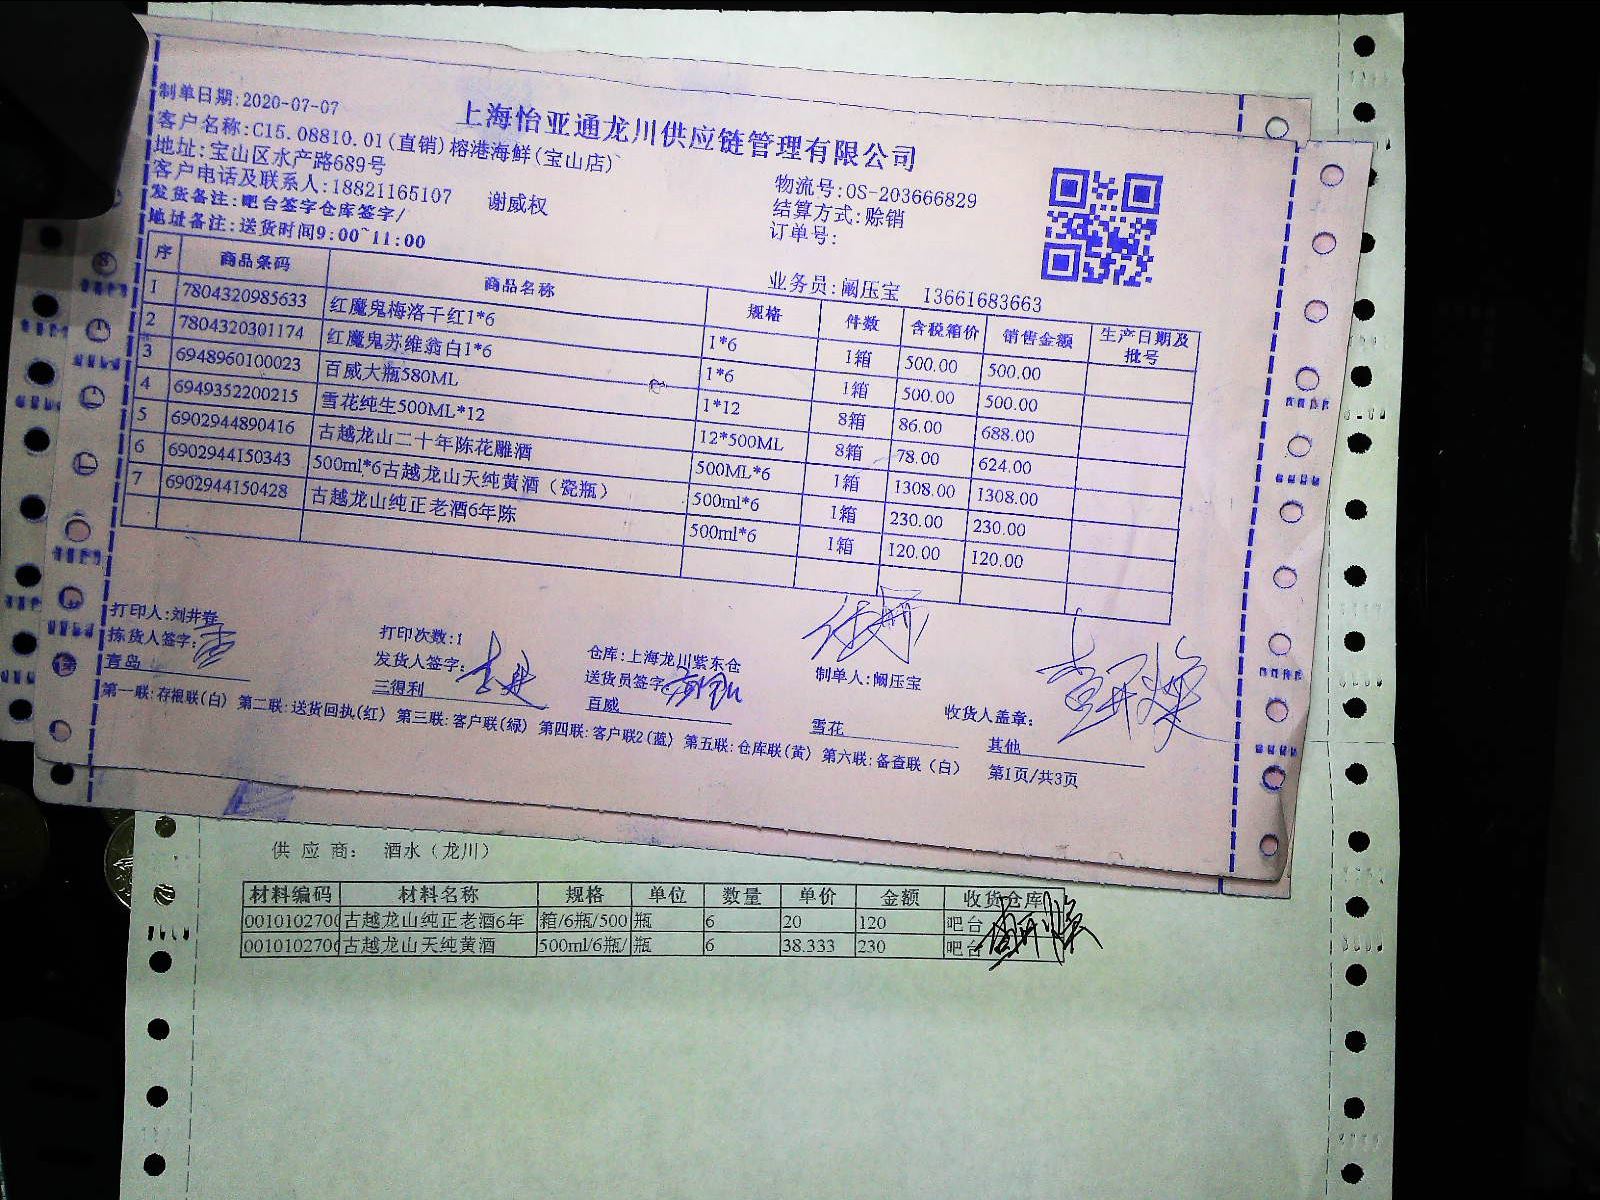 制单日期:2020-07-07
上海怡亚通龙川供应链管理有限公司
客户名称:C15.08810.01(直销)榕港海鲜(宝山店)
地址:宝山区水产路689号
客户电话及联系人:18821165107 谢威权
发货备注:吧台签字仓库签字/
地址备注:送货时间9:00~11:00
物流号:OS-203666829
结算方式:赊销
订单号:
业务员:阚压宝 13661683663
序 商品条码 商品名称 规格 件数 含税箱价 销售金额 生产日期及批号
1 7804320985633 红魔鬼梅洛干红1*6 1*6 1箱 500.00 500.00
2 7804320301174 红魔鬼苏维翁白1*6 1*6 1箱 500.00 500.00
3 6948960100023 百威大瓶580ML 1*12 8箱 86.00 688.00
4 6949352200215 雪花纯生500ML*12 12*500ML 8箱 78.00 624.00
5 6902944890416 古越龙山二十年陈花雕酒 500ML*6 1箱 1308.00 1308.00
6 6902944150343 500ml*6古越龙山天纯黄酒（瓷瓶） 500ml*6 1箱 230.00 230.00
7 6902944150428 古越龙山纯正老酒6年陈 500ml*6 1箱 120.00 120.00
打印人:刘井春 打印次数:1 仓库:上海龙川紫东仓 制单人:阚压宝
拣货人签字: 发货人签字: 送货员签字: 收货人盖章:
青岛 三得利 百威 雪花 其他
第一联:存根联(白) 第二联:送货回执(红) 第三联:客户联(绿) 第四联:客户联2(蓝) 第五联:仓库联(黄) 第六联:备查联（白） 第1页/共3页
供应商: 酒水（龙川）
材料编码 材料名称 规格 单位 数量 单价 金额 收货仓库
0010102700 古越龙山纯正老酒6年 箱/6瓶/500 瓶 6 20 120 吧台
001010270 古越龙山天纯黄酒 500ml/6瓶/ 瓶 6 38.333 230 吧台